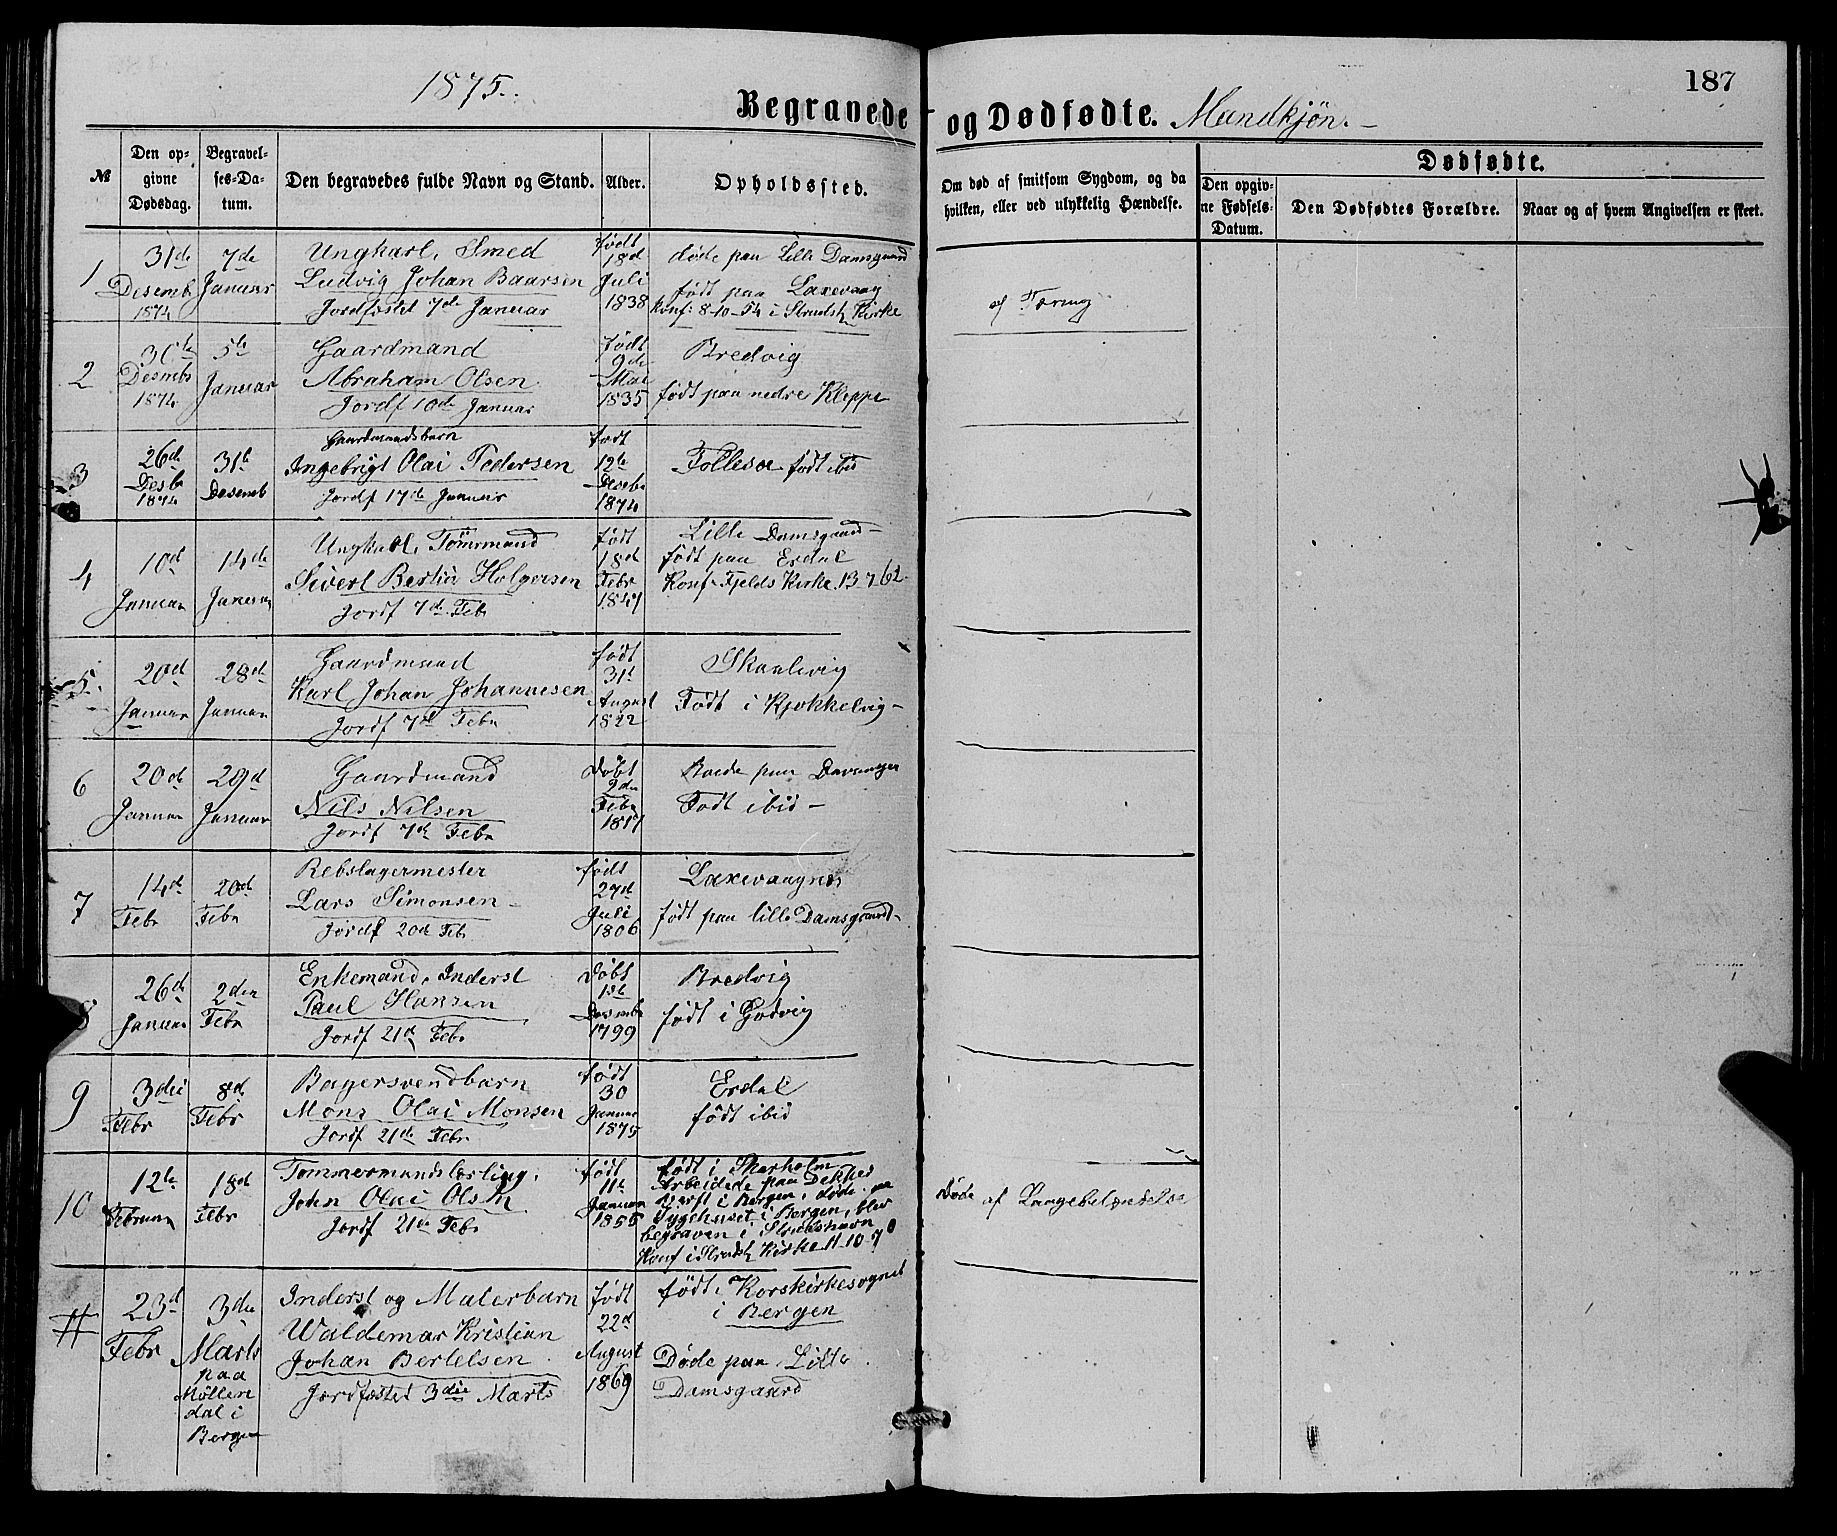 1875.
187
Begravede og Dødfødte. Mandkjön.
№
Den opgivne Dødsdag.
Begravelses-Datum.
Den begravedes fulde Navn og Stand.
Alder.
Opholdssted.
Om død af smitsom Sygdom, og da
hvilken, eller ved ulykkelig Hændelse.
Dødfødte.
Den opgivne Fødsels-Datum.
Den Dødfødtes Forældre.
Naar og af hvem Angivelsen er skeet.
1
31de
Desemb
1874
7de
Januar
Ungkarl, Smed
Ludvig Johan Baarsen
Jordfæstet 7de Januar
født
18d
Juli
1838
døde paa Lille Damsgaard
født paa Laxevaag
konf: 8-10-54 i Strudsh Kirke
af Tæring
2
30te
Desmb
1874
5te
Januar
Gaardmand
Abraham Olsen
Jordf 10de Januar
født
9de
Mai
1835
Bredvig
født paa nedre Kleppe
3
26d
Desbr
1874
31te
Desemb
Gaardmandsbarn
Ingebrigt Olai Pedersen
Jordf 17de Januar
født
12te
Desebr
1874
Follesø født ibid
4
10d
Januar
14de
Januar
Ungkarl, Tömmand
Sivert Bertin Holgersen
Jordf 7de Febr
født
18d
Febr
1847
Lille Damsgaard
født paa Erdal
Konf Fjelds Kirke 13-7 62
5
20d
Januar
28d
Januar
Gaardmand
Karl Johan Johannesen
Jordf 7d Febr
født
31t
August
1822
Skaalevig
Født i Kjøkkelvig
6
20de
Januar
29d
Januar
Gaardmand
Nils Nilsen
Jordf 7de Febr
Døbt
9de
Febr
1817
Boede paa
Født ibid
7
14d
Febr
20d
Febr
Rebslagermester
Lars Simonsen
Jordf 20d Febr
født
27d
Juli
1806
Laxevaagnes
født paa lille Damsgaard
8
26d
Januar
2den
Febr
Enkemand, Inderst
Paul Hansen
Jordf 21d Febr
Døbt
1st
Desembr
1799
Bredvig
født i Godvig
9
3die
Febr
8d
Febr
Bagersvendbarn
Mons Olai Monsen
Jordf 21de Febr
født
30
Januar
1875
Erdal
født ibid
10
12te
Februar
18d
Febr
Tømmermandslærling,
John Olai Olsen
Jordf 21de Febr
født
11te
Januar
1855
født i Skarholm
Arbeidede paa Dekkes
Verft i Bergen, døde paa
Sygehuset i Bergen, blev
begraven i Strudshavn
Konf i Strudsh Kirke 11-10-70
Døde af Lungebetændelse
11
23d
Febr
3die
Marts
paa
Møllen
dal i
Bergen
Inderst og Malerbarn
Waldemar Kristian
Johan Bertelsen
Jordfæstet 3die Marts
født
22d
August
1869
født i Korskirkesognet
i Bergen
Døde paa Lille
Damsgaard